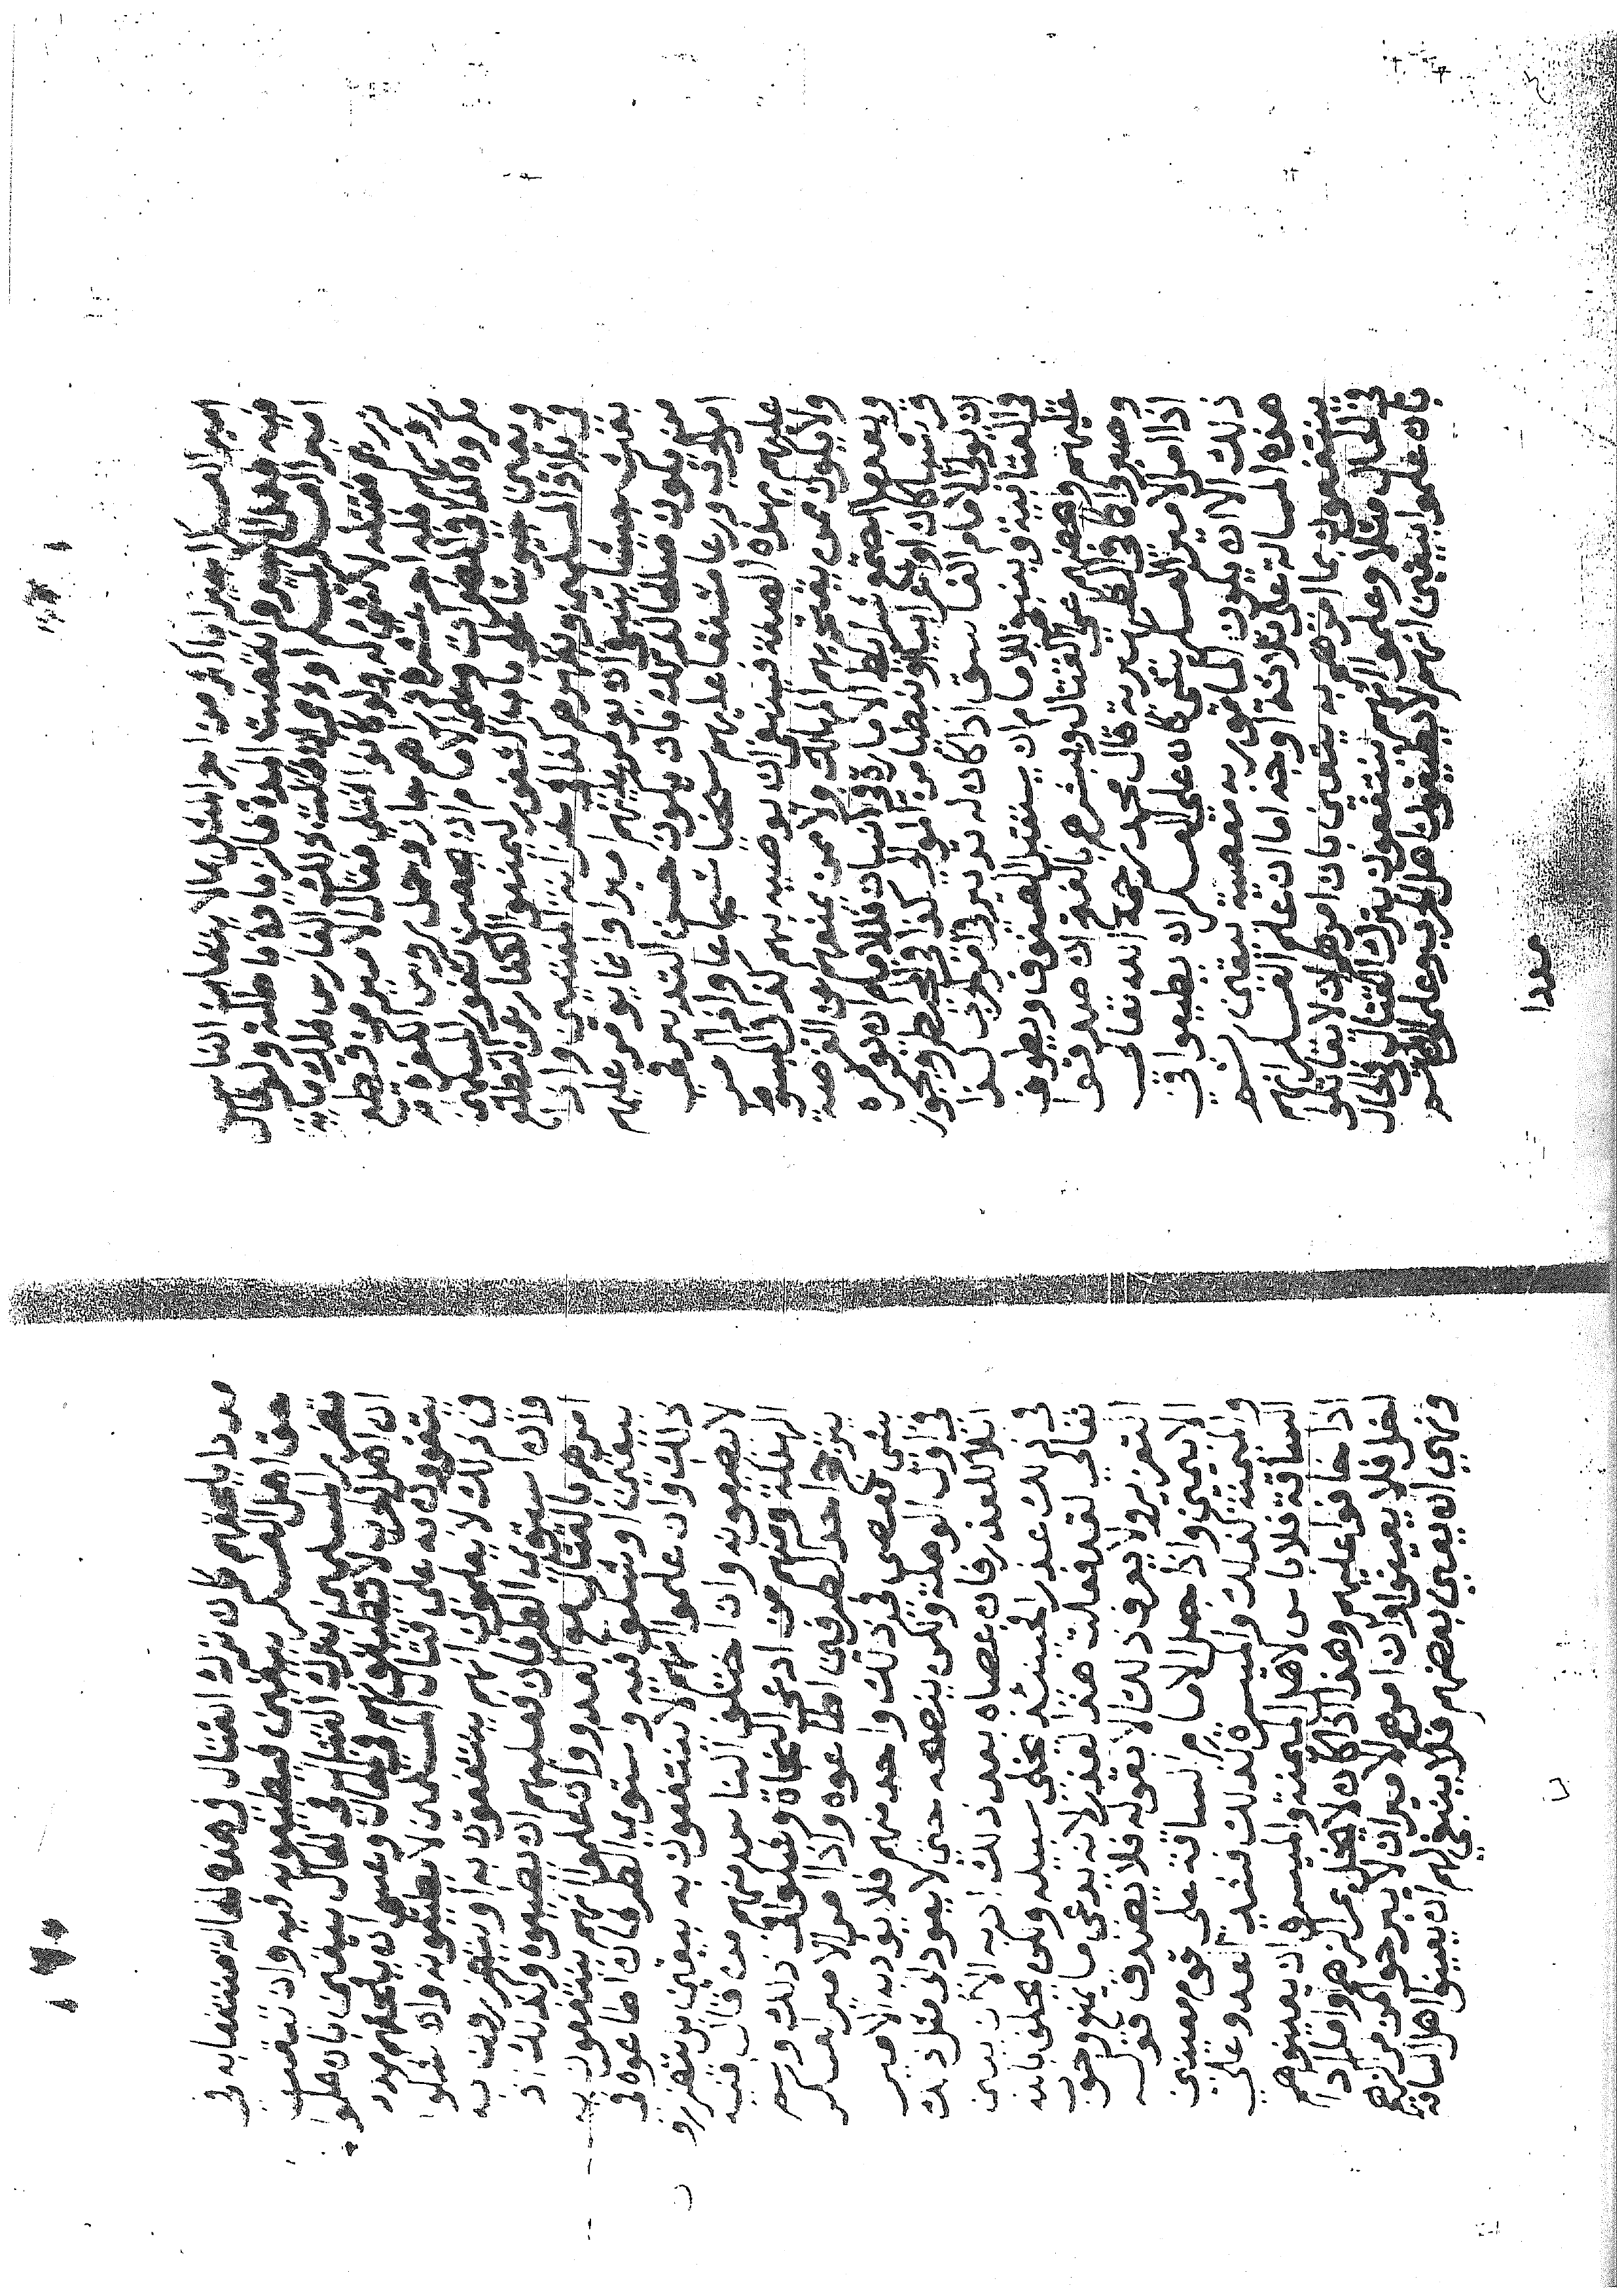 امير العسكر اجيرا باكثر من اجر المثل بما لا يتغابن الناس
فيه فعمل الاجير وانقضت المدة فالزيادة باطلة ولو قال
امير العسكر لمسلم او ذمي ان قتلت ذلك الفارس فلك مائة
درهم فقتله لا شي له ولو كانوا قتلى فقال الامير من قطع
روسهم فله اجر عشرة دراهم جاز وحمل روس الكفرة
مكروه كذا في الظهيرية وعلى الامام ان يحصن ثغور المسلمين
ويعين جيوشا على باب الثغور ليمنعوا الكفار عن
في بلاد المسلمين ويقهروهم كذا في خزانة المفتيين واذا
بعث جيشا ينبغي ان يومر عليهم اميرا وانما يومر عليهم
من يكون صالحا لذلك بان يكون حسن التدبير في
امر الحرب ورعا مشفقا عليهم سخيا شجاعا واذا امر
عليهم بهذه الصفة فينبغي ان يوصيه بهم كذا في المبسوط
ولا يكون ممن يقتحم بهم المهالك ولا ممن يمنعهم عن الفرصة
وبعدما اجتمع شرايط الامارة في انسان فللامام ان يومره
قرشيا كان او عربيا او نبطيا من الموالي كذا في المحيط ويجوز
ان يولي الامام الفاسق اذا كان له تدبير في امر الحرب كذا
في العتابية وينبغي للامام ان يستقبل الصفوف ويطوف
عليهم ويحضهم على القتال ويبشرهم بالفتح ان صدقوا
وصبروا كذا في الظهيرية قال محمد رحمه الله تعالى
اذا امر الامير العسكر بشي كان على العسكر ان يطيعوا في
ذلك الا ان يكون المامور به معصية بيقين ثم
هذه المسالة على ثلاثة اوجه اما ان علم العسكر انهم
ينتفعون بما امرهم به بيقين بان امرهم ان لا يقاتلوا
في الحال مثلا وعلموا انهم ينتفعون بترك القتال في الحال
بان علموا بيقين انهم لا يطيقون اهل الحرب وعلموا ان ثمه
مددا
مددا يلحقهم كان ترك القتال في هذه الحالة منتفعا به في
حق اهل العسكر بيقين فيطيعونه فيه وان تيقنوا
تضرر المسلمين بترك القتال في الحال بيقين بان علموا
ان اهل الحرب لا يطيقونهم في الحال وعسى ان يلحقهم مدد
يتقوون به على قتال المسلمين لا يطيعونه وان شكوا
في ذلك لا يعلمون انهم ينتفعون به او يتضررون به
وان استوى الطرفان فعليهم ان يطيعوه وكذلك اذ
امرهم بالقتال مع العدو وان علموا انهم ينتفعون به
بيقين او شكوا فيه واستوى الطرفان اطاعوه في
ذلك وان علموا انهم لا ينتفعون به بيقين بل يتضررو
لا يطيعونه وان اختلف الناس منهم من قال فيه
الهلكة ومنهم من ادعى النجاة وشكوا في ذلك ولم
يترجح احد الطرفين اطاعوه واذا امر الامير العسكر
بشي فعصى في ذلك واحد منهم فلا يودبه الامير
في اول الوهلة ولكن ينصحه حتى لا يعود الى مثل ذلك
ابلا للعذر فان عصاه بعد ذلك ادبه الا ان يبين
في ذلك عذرا فحينئذ يخلي سبيله ولكن يحلف بالله
تعالى لقد فعلت هذا لعذر لانه يدعي ما يمنع وجوب
التعزير ولا يعرف ذلك الا بقوله فلا يصدق قوله
الا بيمين واذا جعل الامام الساقة على قوم معينين
والميمنة كذلك والميسرة كذلك فشد العدو على
الساقة فلا باس لاهل الميمنة والميسرة ان يعينوهم
اذا خافوا عليهم وهذا اذا كان لا يخل بمراكزهم واما اذا
اخل فلا يعينوا وان امرهم الامير ان لا يبرحوا من مراكزهم
ونهى ان يعين بعضهم فلا ينبغي لهم ان يعينوا اهل الساقة